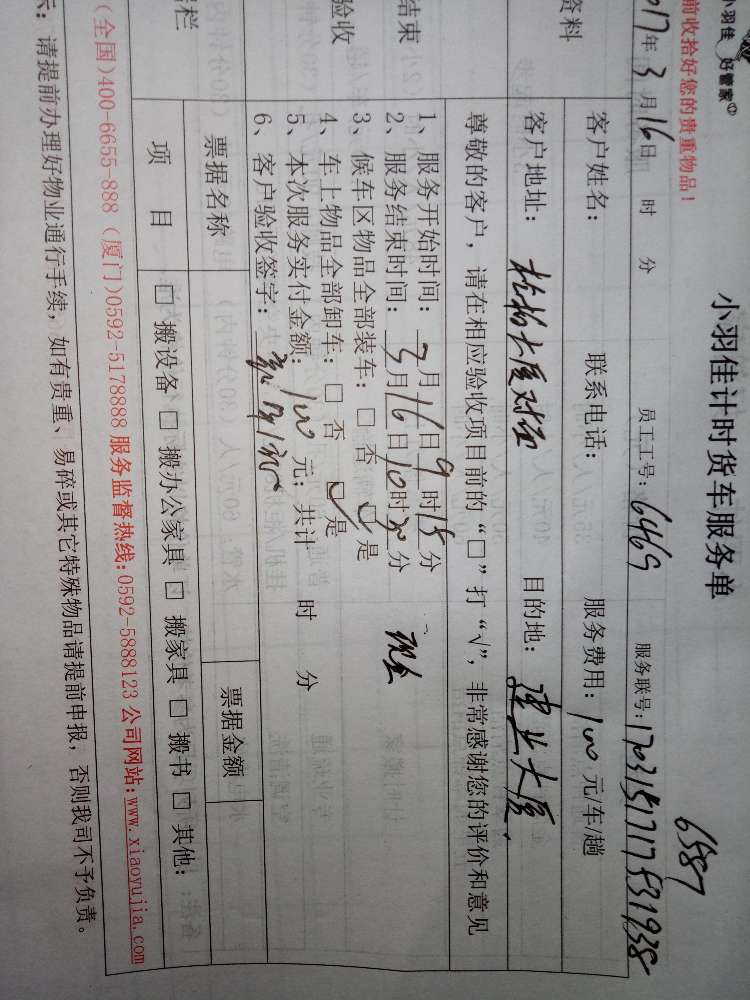 小羽佳 好管家
小羽佳计时货车服务单
6587
前收拾好您的贵重物品！
017年3月16日 时 分 员工工号：6469 服务联号：1703151717531938
资料
客户姓名： 联系电话： 服务费用：100元/车/趟
客户地址： 大厦对面 目的地：建业大厦.
尊敬的客户，请在相应验收项目前的“□”打“√”，非常感谢您的评价和意见
结束
验收
1、服务开始时间：3月16日9时15分
2、服务结束时间：3月16日10时30分 现金
3、候车区物品全部装车：□ 否 ☑ 是
4、车上物品全部卸车：□ 否 ☑ 是
5、本次服务实付金额：100元；共计 时 分
6、客户验收签字：
据栏
票据名称 票据金额
项 目 □ 搬设备 □ 搬办公家具 □ 搬家具 □ 搬书 □ 其他：
(全国)400-6655-888 (厦门)0592-5178888 服务监督热线:0592-5888123 公司网站:www.xiaoyujia.com
示：请提前办理好物业通行手续，如有贵重、易碎或其它特殊物品请提前申报，否则我司不予负责。